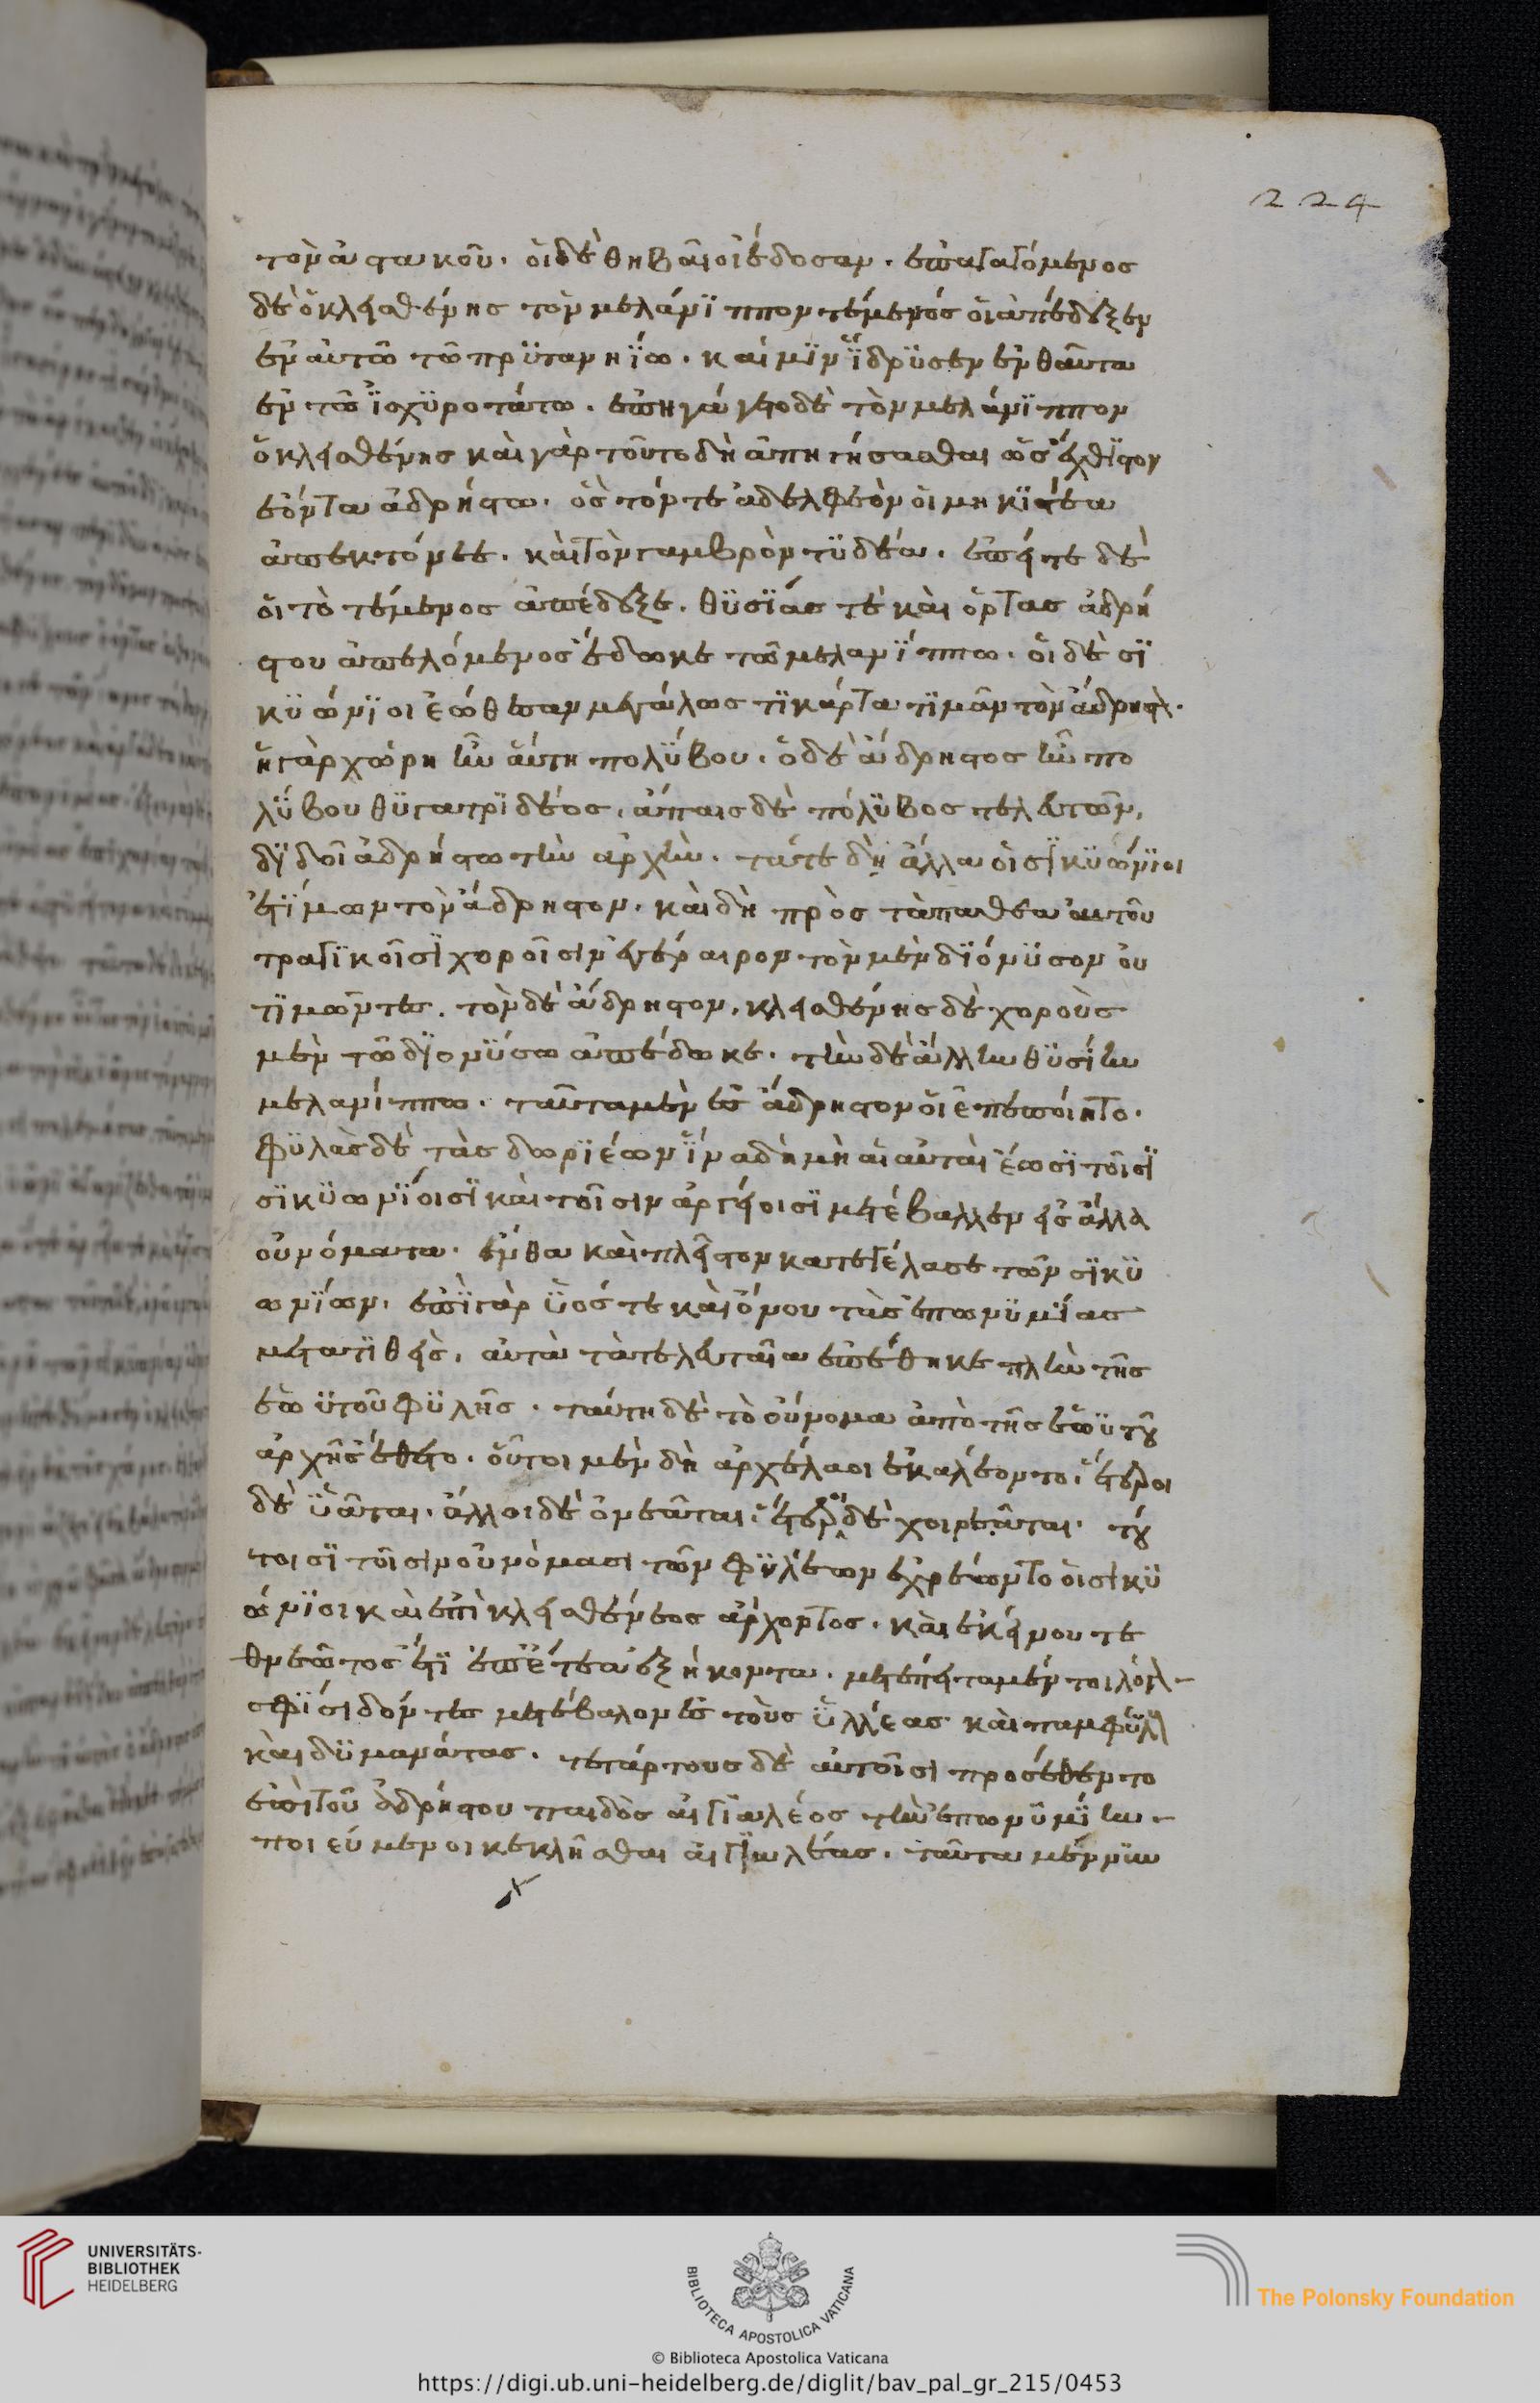 224
τὸν ἀστακοῦ. οἱ δὲ θηβαῖοι ἔδοσαν. ἐπαγαγόμενος
δὲ ὁ κλεισθένης τὸν μελάνϊππον τέμενός οἱ ἀπέδειξεν
ἐν ἀυτῶ τῶ πρϋτανηΐω. καί μϊν ἵδρϋσεν ἐνθαῦτα
ἐν τῶ ἰσχϋροτάτω. ἐπηγάγετο δὲ τὸν μελάνϊππον
ὁ κλεισθένης καὶ γὰρ τοῦτο δὴ ἀπηγήσασθαι ὡς ἔχθϊστον
ἐόντα ἀδρήστω. ὃς τόν τε ἀδελφεόν οἱ μηκϊστέα
ἀπεκτόνεε. καὶ τὸν γαμβρὸν τϋδέα. ἐπείτε δὲ
οἱ τὸ τέμενος ἀπέδειξε. θϋσϊάς τε καὶ ὁρτας ἀδρή
στου ἀπελόμενος ἔδωκε τῶ μελανΐππω. οἱ δὲ σϊ
κϋώνϊοι ἐώθεσαν μεγάλωστϊ κάρτα τϊμᾶν τὸν ἄδρηστον.
ἡ γὰρ χώρη ἦν ἅυτη πολΰβου. ὁ δὲ ἄδρηστος ἦν πο
λΰβου θϋγατρϊδέος. ἄπαις δὲ πόλϋβος τελευτῶν,
δϊδοῖ ἀδρήστω τὴν ἀρχήν. τάτε δὴ ἄλλα οἱ σϊκϋώνϊοι
ἐτΐμων τὸν ἄδρηστον. καὶ δὴ πρὸς τὰ παθεα ἀυτοῦ
τραγϊκοῖσϊ χοροῖσιν ἐγέραιρον τὸν μὲν δϊόνϋσον ὀυ
τϊμῶντες. τὸν δὲ ἄδρηστον. κλεισθένης δὲ χοροὺς
μὲν τῶ δϊονΰσω ἀπέδωκε. τὴν δὲ ἄλλην θϋσίην
μελανίππω. ταῦτα μὲν ἐς ἄδρηστον ὅι ἐπεποίητο.
φϋλὰς δὲ τὰς δωρϊέων ἵνα δὴ μὴ αἱ ἀυταὶ ἔωσϊ τοῖσϊ
σϊκϋωνΐοισϊ καὶ τοῖσιν ἀργείοισϊ μετέβαλλεν ἐς ἄλλα
οὐνόματα. ἔνθα καὶ πλεῖστον κατεγέλασε τῶν σϊκϋ
ωνΐων. ἐπὶ γὰρ ὑός τε καὶ ὄνου τὰς ἐπωνϋμΐας
μετατϊθεὶς. ἀυτὰ τὰ τελευταῖα ἐπέθηκε πλὴν τῆς
ἑωϋτοῦ φϋλῆς. ταύτη δὲ τὸ οὔνομα ἀπὸ τῆς ἑωϋτοῦ
ἀρχῆς ἔθετο. οὗτοι μὲν δὴ ἀρχέλαοι ἐκαλέοντο. ἕτεροι
δὲ ὑᾶται. ἄλλοι δὲ ὀνεᾶται. ἕτεροι δὲ χοιρεᾶται. τού
τοισϊ τοῖσιν οὐνόμασι τῶν φϋλέων ἐχρέωντο οἱ σϊκϋ
ώνϊοι καὶ ἐπὶ κλεισθένεος ἄρχοντος. καὶ ἐκείνου τε
θνεῶτος ἔτϊ ἐπ ἔτεα ἑξήκοντα. μετέπειτα μέν τοι λόγον
σφΐσι δόντες μετέβαλον ἐς τοὺς ὑλλέας καὶ παμφύλους
καὶ δϋμανάτας. τετάρτους δὲ ἀυτοῖσι προσέθεντο
ἐπὶ τοῦ ἀδρήστου παιδὸς αἰγϊαλέος τὴν ἐπωνϋμΐην
ποιεύμενοι κεκλῆσθαι αἰγϊαλέας. ταῦτα μέν νυν
UNIVERSITÄTS-
BIBLIOTHEK
HEIDELBERG
BIBLIOTECA APOSTOLICA VATICANA
© Biblioteca Apostolica Vaticana
The Polonsky Foundation
https://digi.ub.uni-heidelberg.de/diglit/bav_pal_gr_215/0453